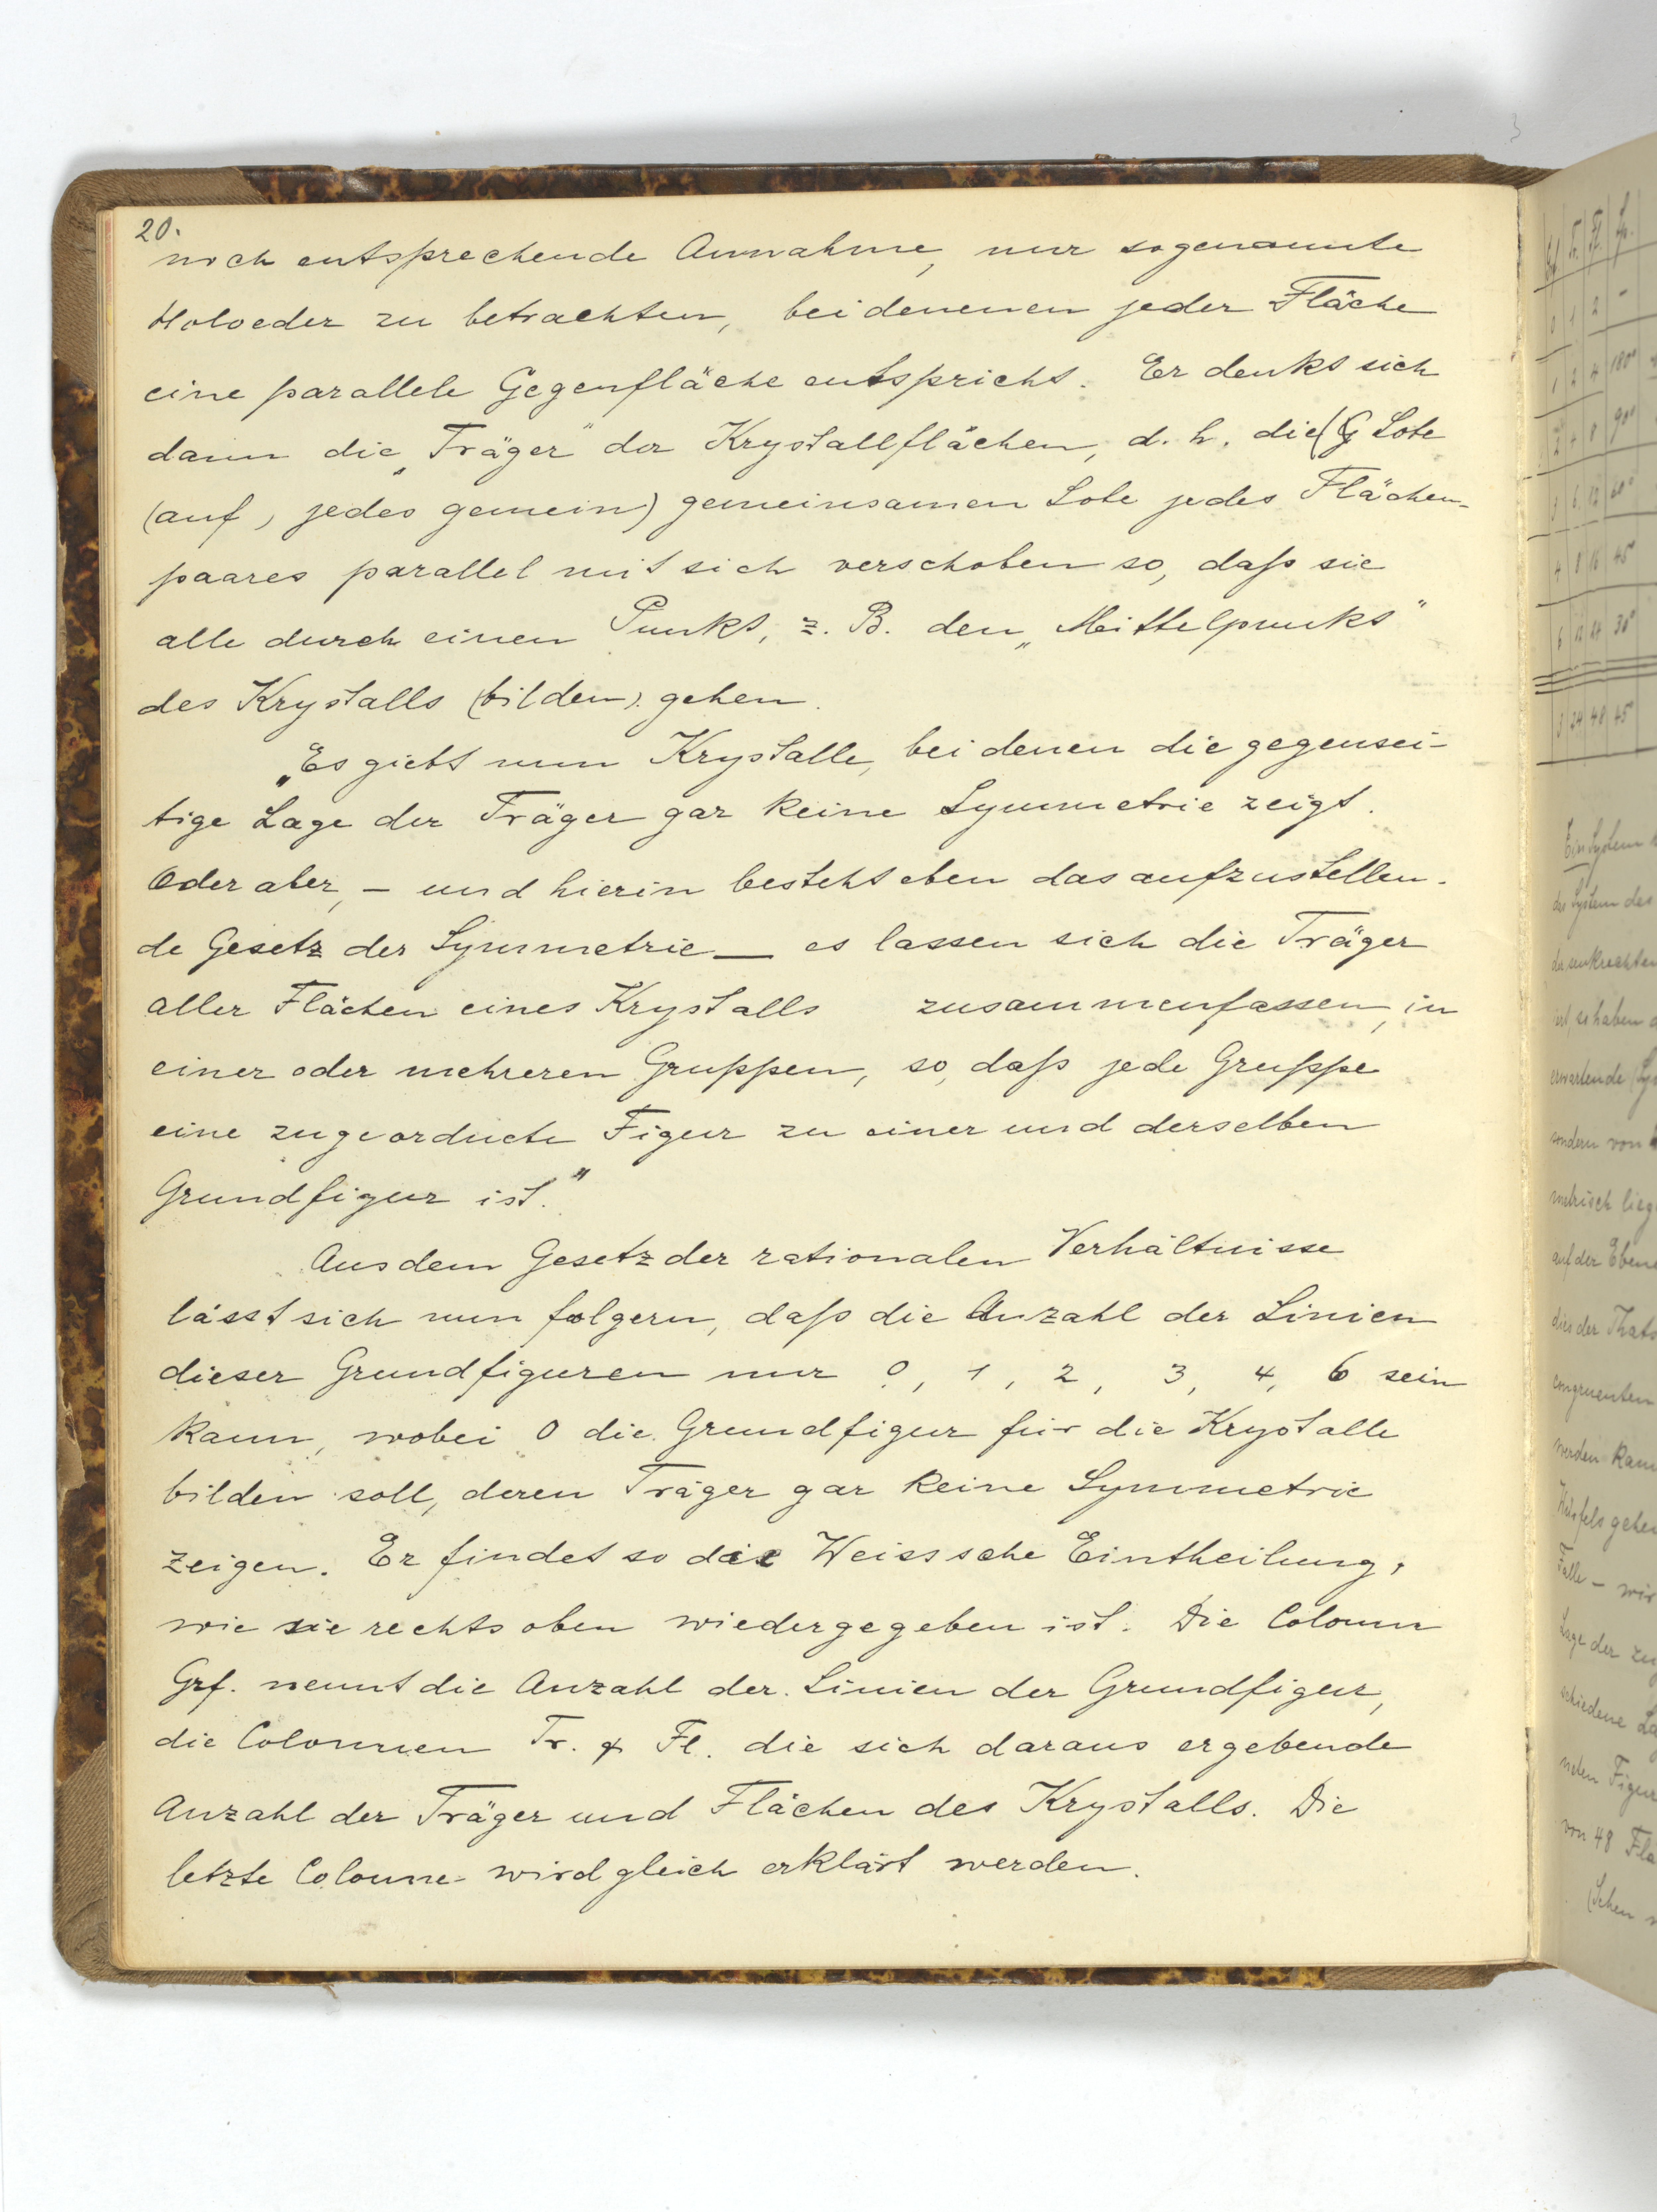 20.
noch entsprechende Annahme, nur sogenannte
Holoeder zu betrachten, bei denenen jeder Fläche
eine parallele Gegenfläche entspricht. Er denkt sich
dann die „Träger" der Krystallflächen, d. h. die (G Lote
(auf, jedes gemein) gemeinsamen Lote jedes Flächen-
paares parallel mit sich verschoben so, daſs sie
alle durch einen Punkt, z. B. den „Mittelpunkt"
des Krystalls (bilden). gehen.
„Es giebt nun Krystalle, bei denen die gegensei-
tige Lage der Träger gar keine Symmetrie zeigt.
Oder aber, – und hierin besteht eben das aufzustellen-
de Gesetz der Symmetrie – es lassen sich die Träger
aller Flächen eines Krystalls zusammenfassen, in
einer oder mehreren Gruppen, so, daſs jede Gruppe
eine zugeordnete Figur zu einer und derselben
Grundfigur ist."
Aus dem Gesetz der rationalen Verhältnisse
lässt sich nun folgern, daſs die Anzahl der Linien
dieser Grundfiguren nur 0, 1, 2, 3, 4, 6 sein
kann, wobei 0 die Grundfigur für die Krystalle
bilden soll, deren Träger gar keine Symmetrie
zeigen. Er findet so die Weisssche Eintheilung,
wie sie rechts oben wiedergegeben ist. Die Colonn
Grf. nennt die Anzahl der Linien der Grundfigur,
die Colonnen Tr. & Fl. die sich daraus ergebende
Anzahl der Träger und Flächen des Krystalls. Die
letzte Colonne wird gleich erklärt werden.
Tr. Fl.
0 1 2 –
1 2 4 180°
2 4 8 90°
3 6 12 60°
4 8 16 45°
6 12 24 30°
3 24 48 45°
Ein System
das System des
der senkrechten
ist, so haben
erwartende
sondern von
metrisch lieg
auf der Ebene
dies der Thats
congruenten
werden kann
Würfels gehen
Falle – wir
Lage der zu
schiedene La
neten Figur
von 48 Flä
(Sehen